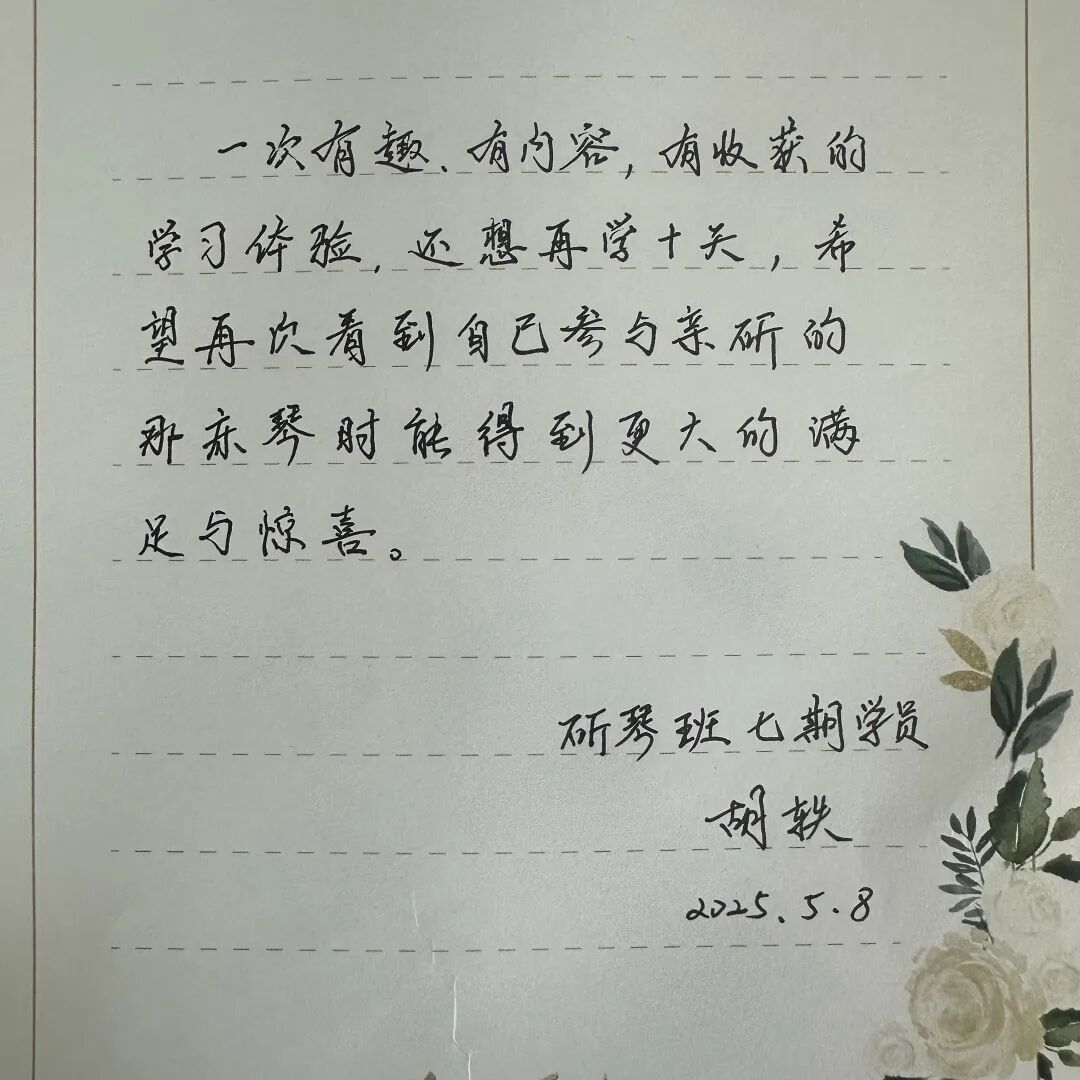 一次有趣、有内容,有收获的
学习体验,还想再学十天,希
望再次看到自己参与亲斫的
那床琴时能得到更大的满
足与惊喜。
斫琴班七期学员
胡轶
2025.5.8